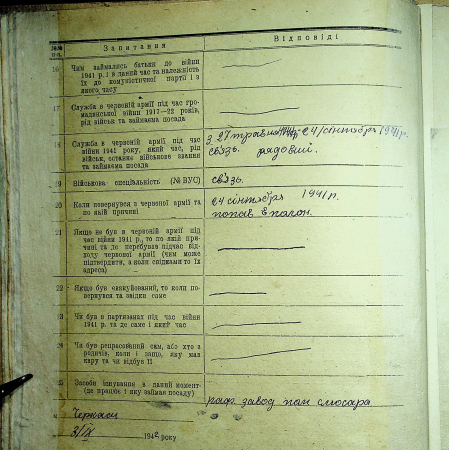 №№ п-п.
Запитання
Відповіді
16
Чим займались батьки до війни
1941 р. і в даний час та належність
їх до комуністичної партії і з
якого часу
17
Служба в червоній армії під час гро-
мадянської війни 1917—22 років,
рід військ та займаєма посада
18
Служба в червоній армії під час
війни 1941 року, який час, рід
військ, останнє військове звання
та займаєма посада
з 27 травня 1941 р. 24/сінтября 1941 р.
связь. рядовий.
19
Військова спеціальність (№ ВУС)
связь.
20
Коли повернувся з червоної армії та
по якій причині
24 сінтября 1941 р.
попав в полон.
21
Якщо не був в червоній армії під
час війни 1941 р., то по якій при-
чині та де перебував підчас від-
ходу червоної армії (чим може
підтвердити, з коли свідками то їх
адреса)
22
Якщо був евакуйований, то коли по-
вернувся та звідки саме
23
Чи був в партизанах під час війни
1941 р. та де саме і який час
24
Чи був репресований сам, або хто з
родичів, коли і защо, яку мав
кару та чи відбув її
25
Засоби існування в даний момент-
(де працює і яку займає посаду)
завод слюсаря
Черкаси
3/IX 1942 року